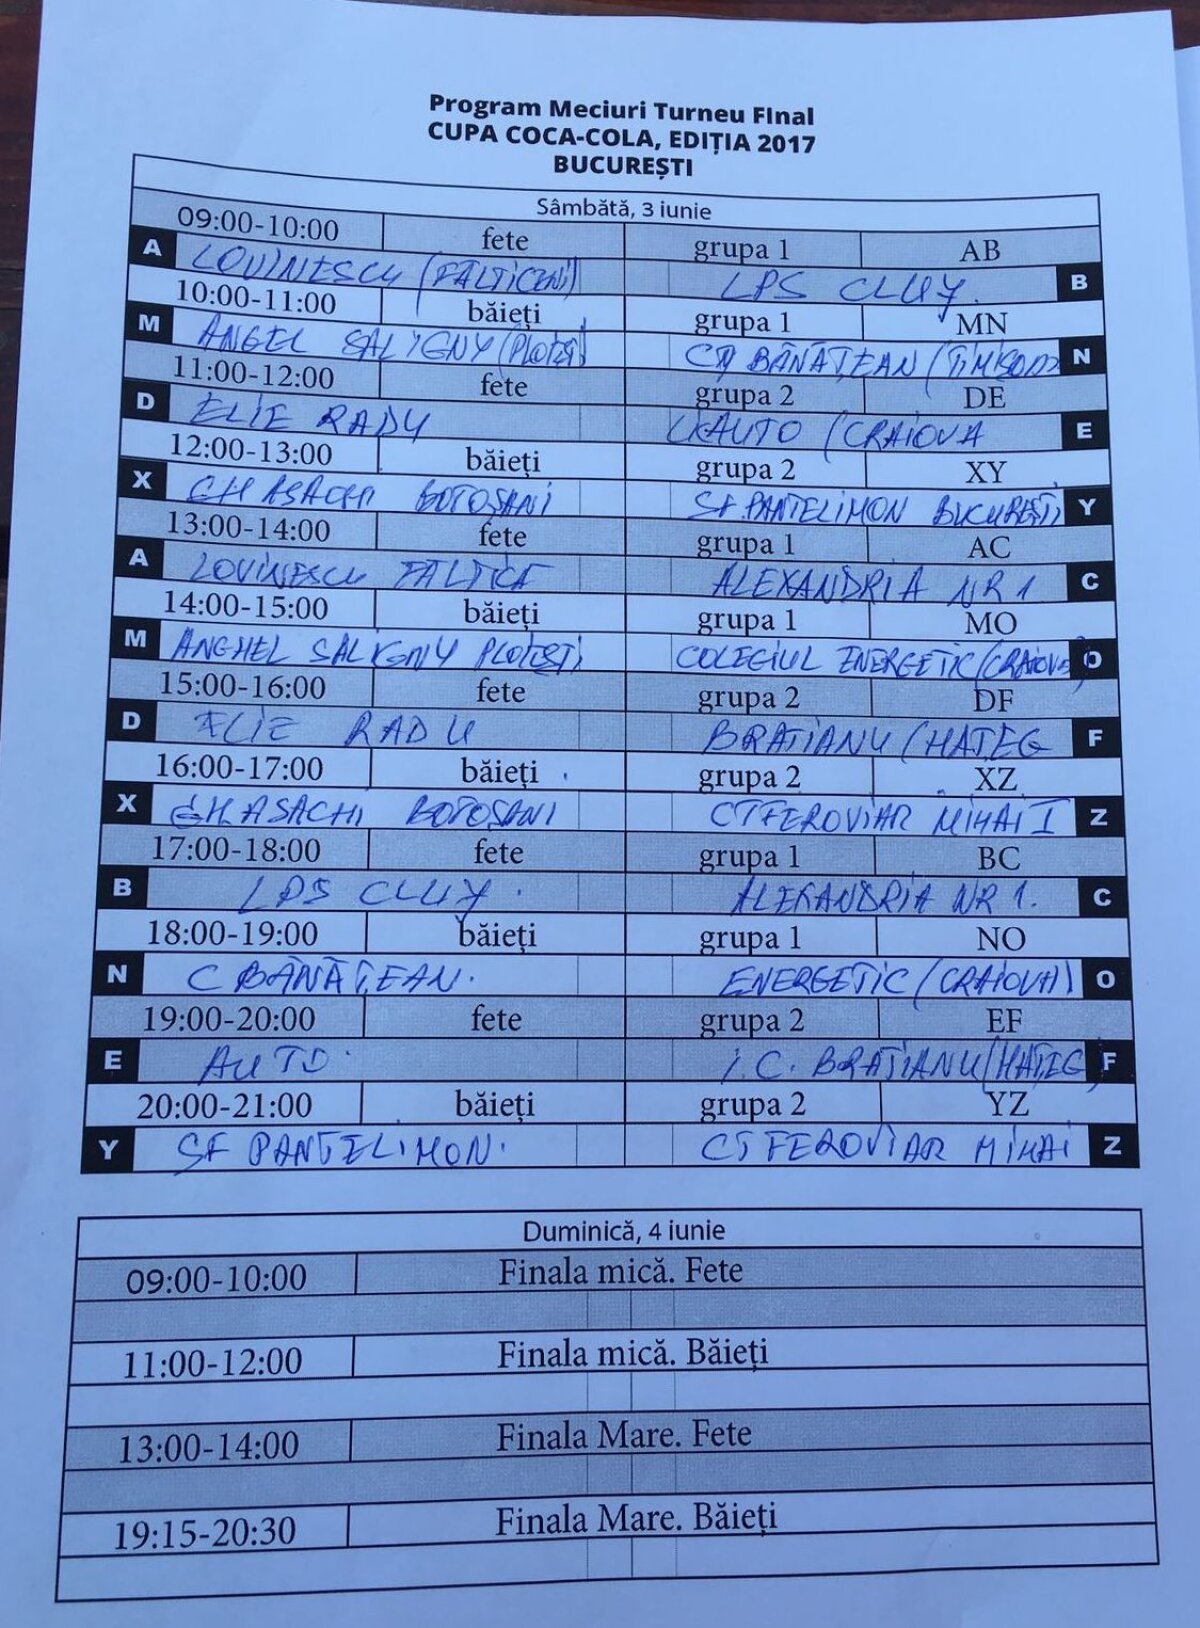 Program Meciuri Turneu FInal
CUPA COCA-COLA, EDIȚIA 2017
BUCUREȘTI
Sâmbătă, 3 iunie
09:00-10:00 fete grupa 1 AB
A LOVINESCU (FĂLTICENI) LPS CLUJ. B
10:00-11:00 băieți grupa 1 MN
M ANGEL SALIGNY (PLOIEȘTI) BĂNĂȚEAN N
11:00-12:00 fete grupa 2 DE
D ILIE RADU AUTO (CRAIOVA E
12:00-13:00 băieți grupa 2 XY
X GH ASACHI BOTOȘANI SF. PANTELIMON BUCUREȘTI Y
13:00-14:00 fete grupa 1 AC
A LOVINESCU FĂLTICE ALEXANDRIA NR 1 C
14:00-15:00 băieți grupa 1 MO
M ANGHEL SALIGNY PLOIEȘTI COLEGIUL ENERGETIC (CRAIOVA) O
15:00-16:00 fete grupa 2 DF
D ILIE RADU BRATIANU (HAȚEG F
16:00-17:00 băieți grupa 2 XZ
X GH ASACHI BOTOȘANI CT FEROVIAR MIHAI I Z
17:00-18:00 fete grupa 1 BC
B LPS CLUJ. ALEXANDRIA NR 1. C
18:00-19:00 băieți grupa 1 NO
N C BĂNĂȚEAN. ENERGETIC (CRAIOVA) O
19:00-20:00 fete grupa 2 EF
E AUTO. I.C. BRATIANU (HAȚEG) F
20:00-21:00 băieți grupa 2 YZ
Y SF PANTELIMON. CT FEROVIAR MIHAI Z
Duminică, 4 iunie
09:00-10:00 Finala mică. Fete
11:00-12:00 Finala mică. Băieți
13:00-14:00 Finala Mare. Fete
19:15-20:30 Finala Mare. Băieți